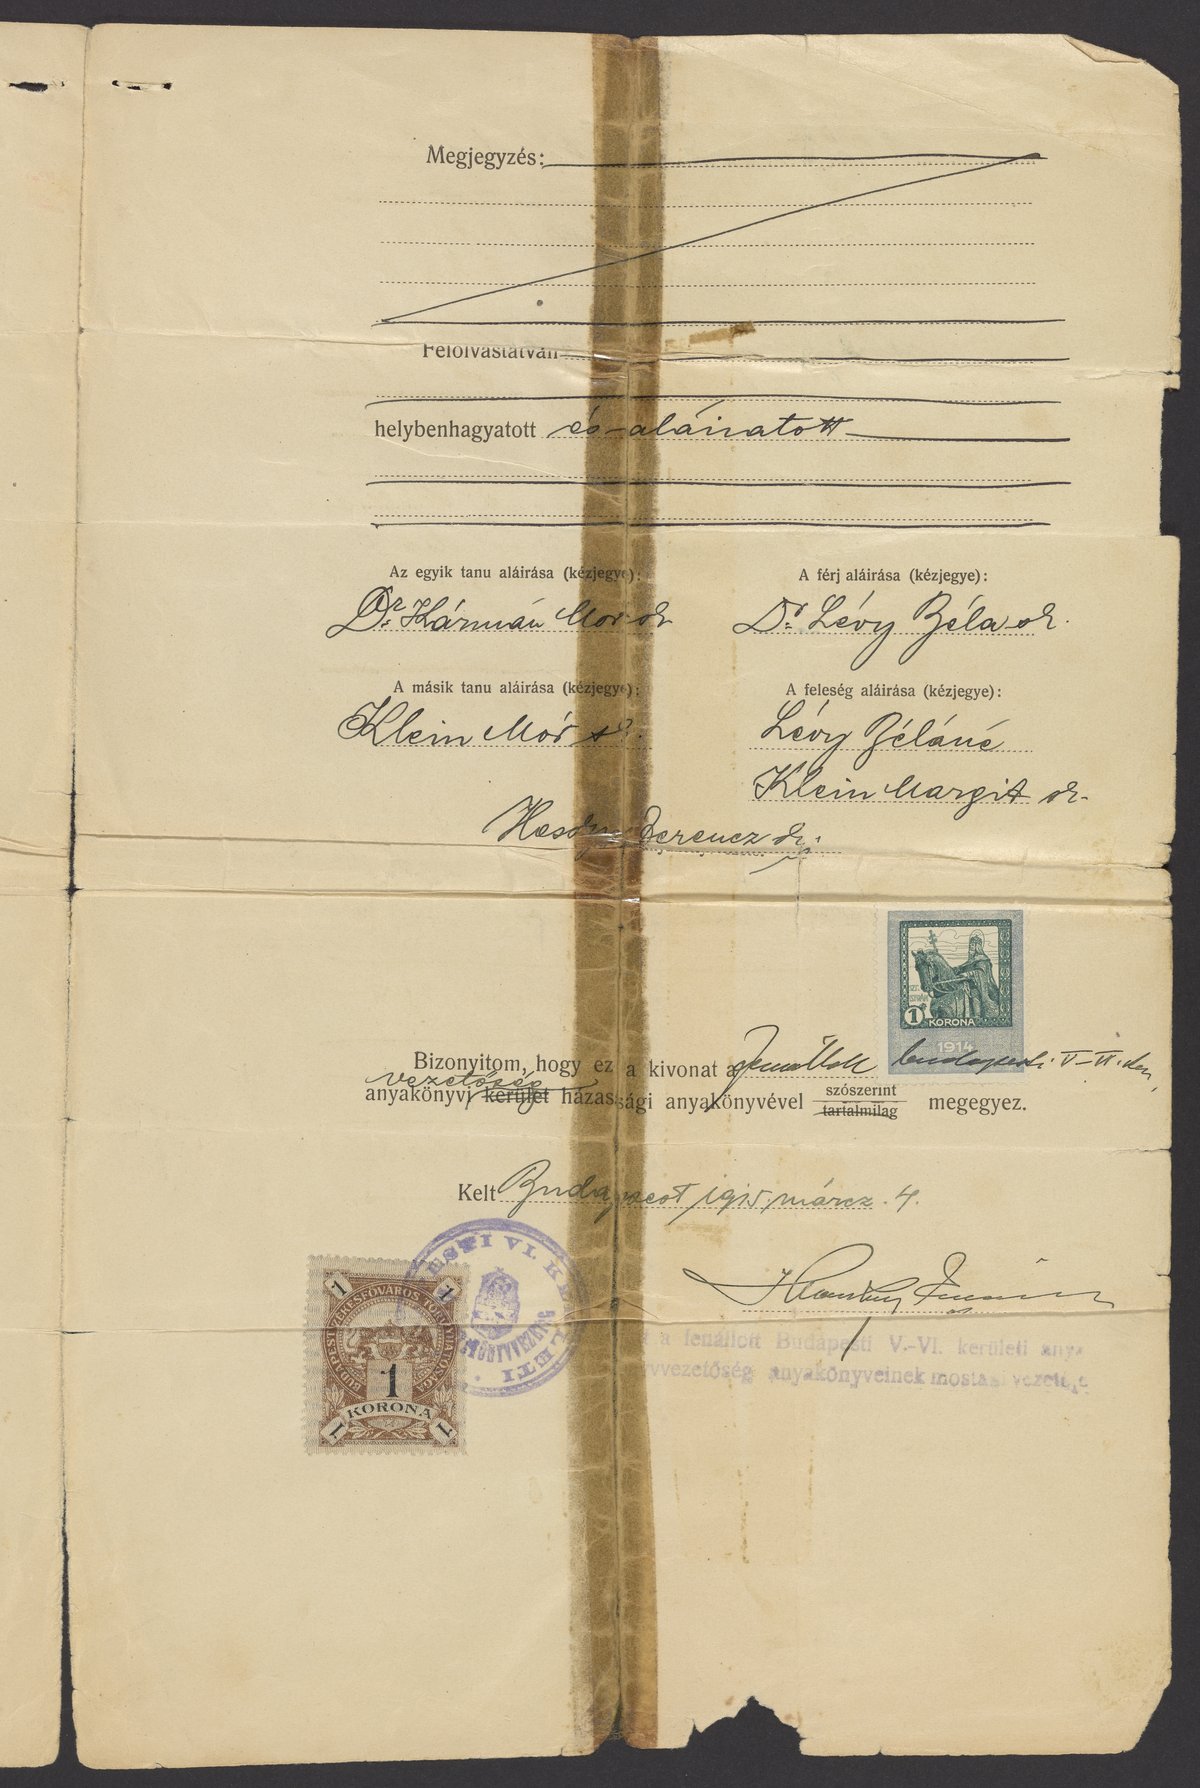 Megjegyzés:
Felolvastatván
helybenhagyatott és aláiratott
Az egyik tanu aláirása (kézjegye):
Dr. Kármán Mór sk
A férj aláirása (kézjegye):
Dr. Lévy Béla sk.
A másik tanu aláirása (kézjegye):
Klein Mór sk.
A feleség aláirása (kézjegye):
Lévy Béláné
Klein Margit sk.
Ferencz sk.
SZT. ISTVÁN
1 KORONA
1914
Bizonyitom, hogy ez a kivonat a fennállott budapesti V–VI. ker.
vezetőség
anyakönyvi kerület házassági anyakönyvével szószerint tartalmilag megegyez.
Kelt Budapest 1915. márcz. 4.
ESTI VI. KE LETI
BUDAPEST SZÉKESFŐVÁROS TÖRVÉNYHATÓSÁGA
1 1
1
KORONA
1 1
a fenállott Budapesti V.-VI. kerületi anya
yvvezetőség anyakönyveinek mostani vezetője